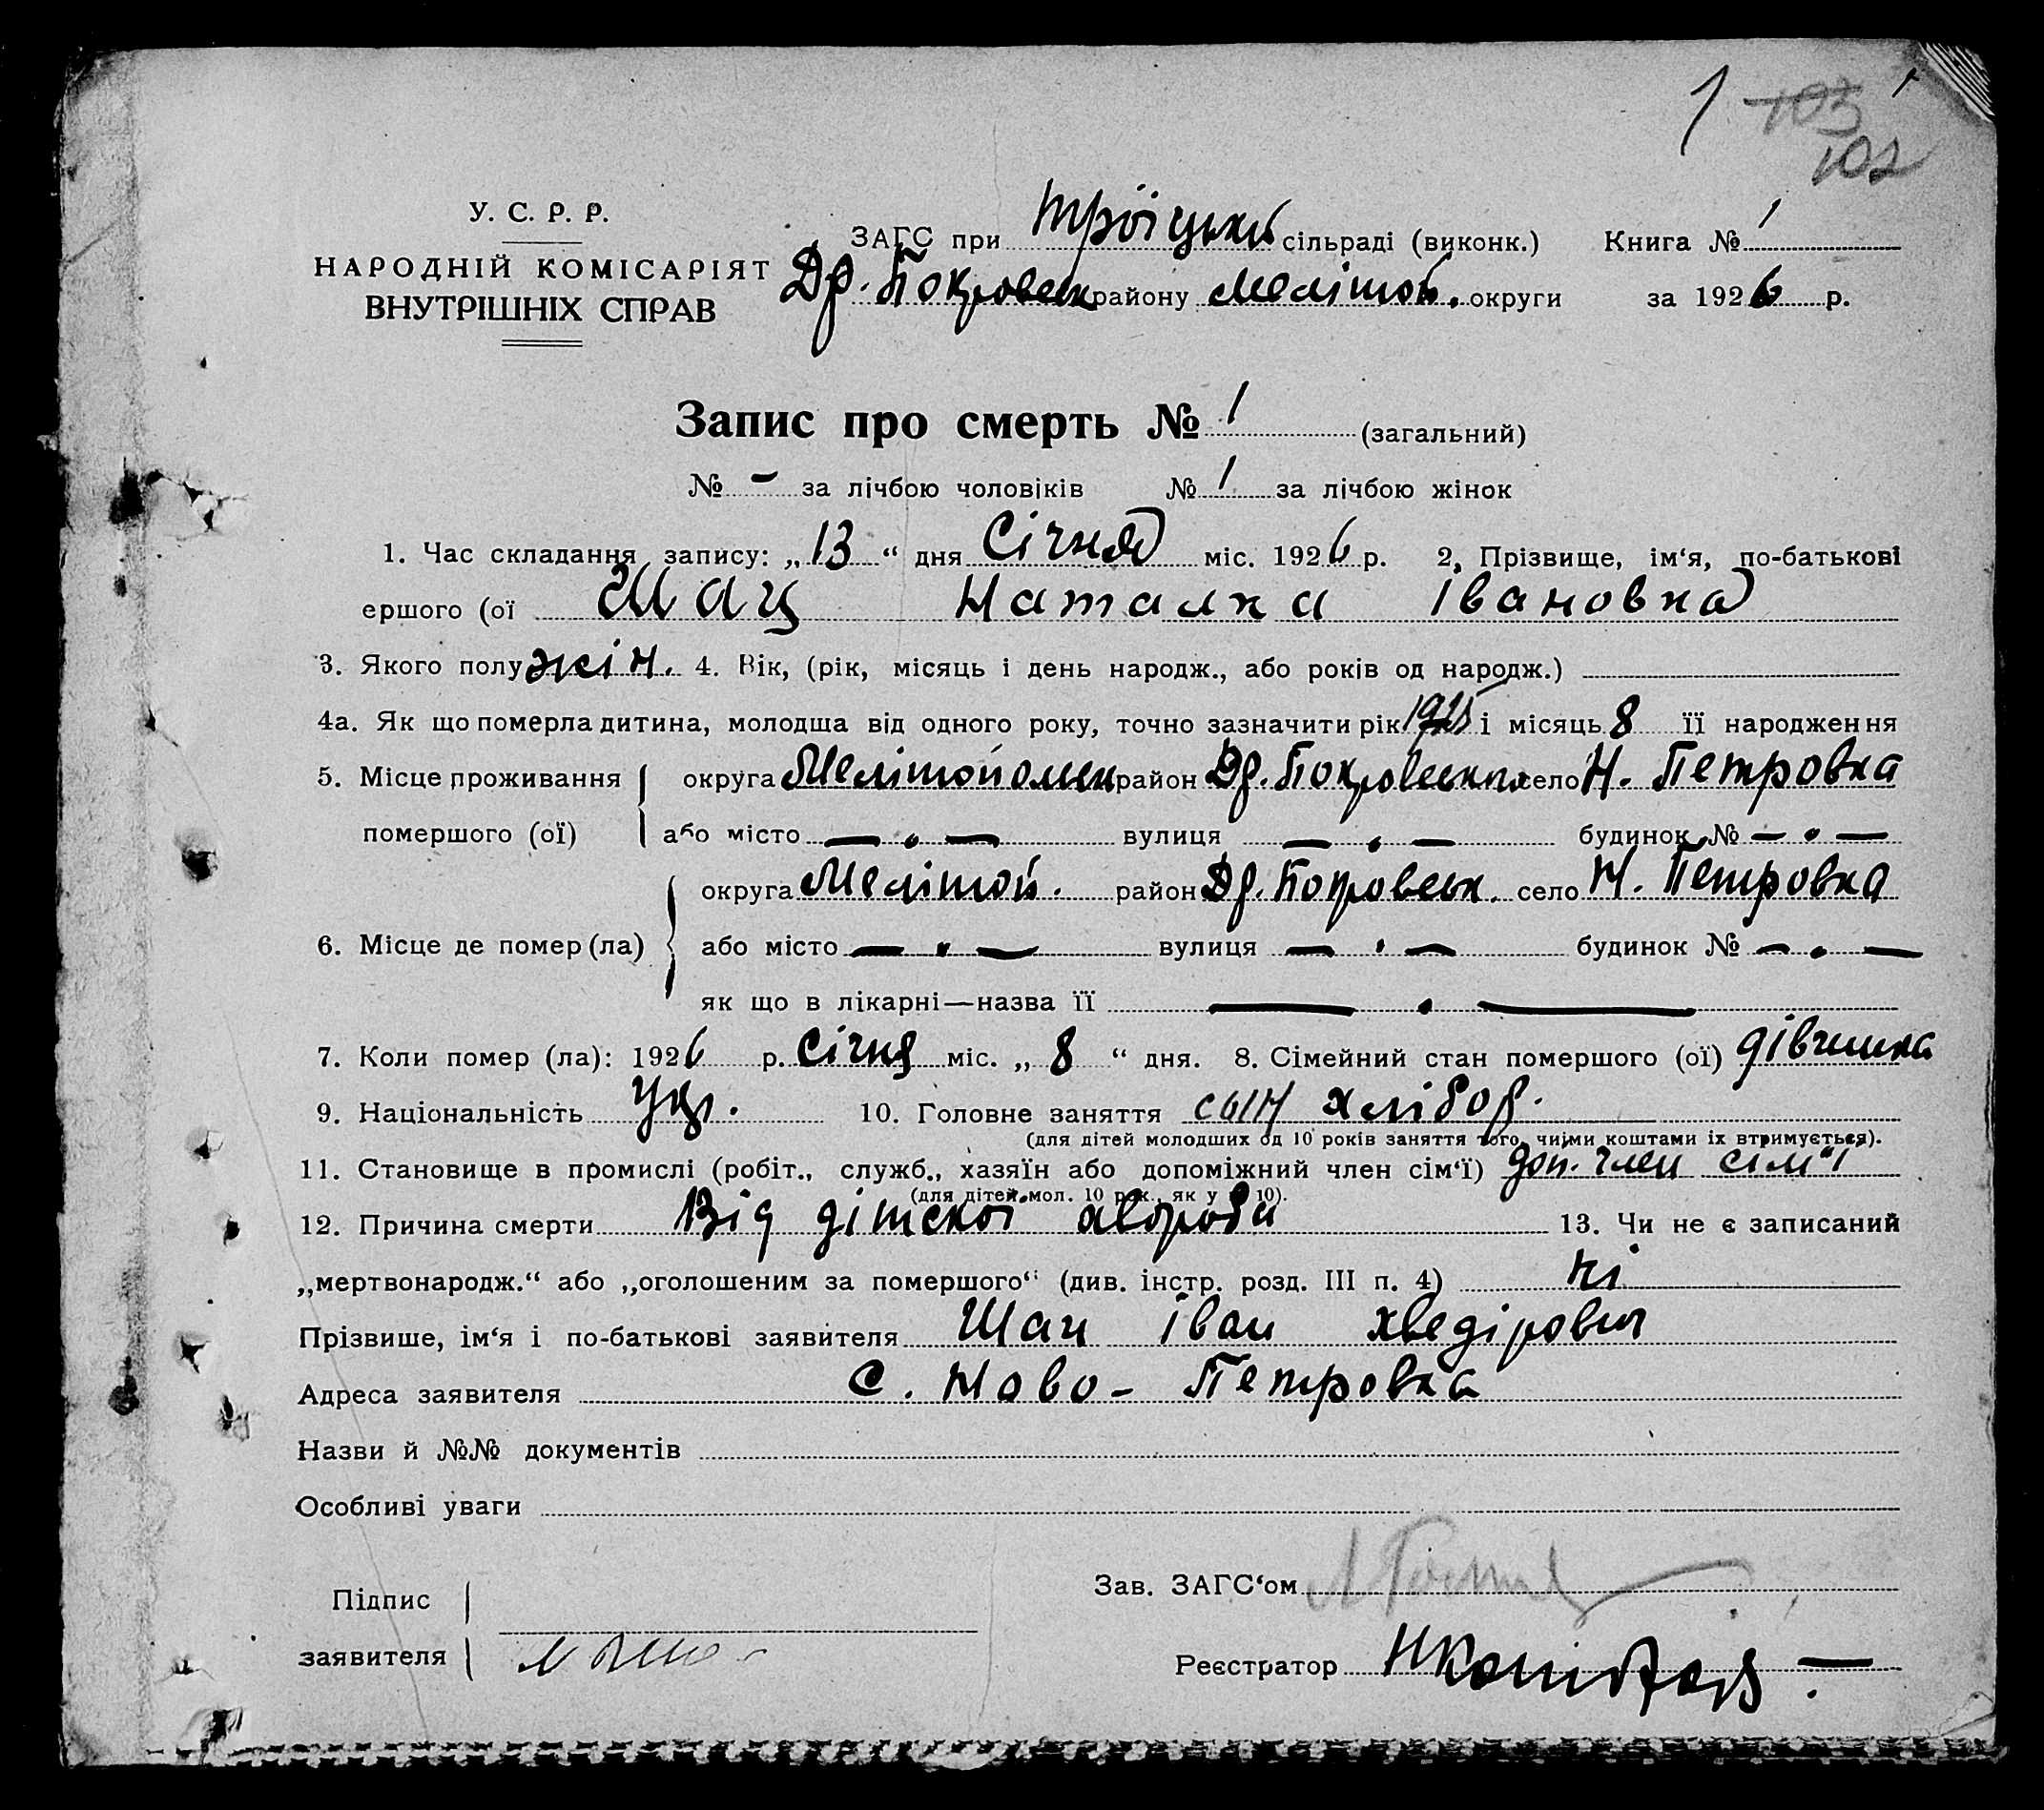 1 103
102
У. С. Р. Р.
НАРОДНІЙ КОМІСАРІЯТ
ВНУТРІШНІХ СПРАВ
ЗАГС при Троіцькій сільраді (виконк.) Книга № 1
Др. Покровськ району Мелітоп. округи за 1926 р.
Запис про смерть № 1 (загальний)
№ - за лічбою чоловіків № 1 за лічбою жінок
1. Час складання запису: „13“ дня Січня міс. 1926 р. 2, Прізвище, ім‘я, по-батькові
ершого (ої Шац Наталка Івановна
3. Якого полу жін. 4. Вік, (рік, місяць і день народж., або років од народж.)
4а. Як що померла дитина, молодша від одного року, точно зазначити рік 1925 і місяць 8 її народження
5. Місце проживання округа Мелітопольск район Др. Покровськ село Н. Петровка
помершого (ої) або місто — . — вулиця — . — будинок № — . —
округа Мелітоп. район Др. Покровськ. село Н. Петровка
6. Місце де помер (ла) або місто — . — вулиця — . — будинок № — . —
як що в лікарні—назва її — . —
7. Коли помер (ла): 1926 р. Січня міс. „8“ дня. 8. Сімейний стан помершого (ої) дівчинка
9. Національність Укр. 10. Головне заняття сын хлібор.
(для дітей молодших од 10 років заняття того, чиїми коштами їх втримується).
11. Становище в промислі (робіт., служб., хазяїн або допоміжний член сім‘ї) доп. член сім"ї
(для дітей мол. 10 рок., як у 10).
12. Причина смерти Від дітскоі хвороби 13. Чи не є записаний
„мертвонародж.“ або „оголошеним за помершого“ (див. інстр. розд. III п. 4) ні
Прізвише, ім‘я і по-батькові заявителя Шац Іван Хведірович
Адреса заявителя с. Ново-Петровка
Назви й №№ документів
Особливі уваги
Підпис
заявителя
Зав. ЗАГС‘ом
Реєстратор